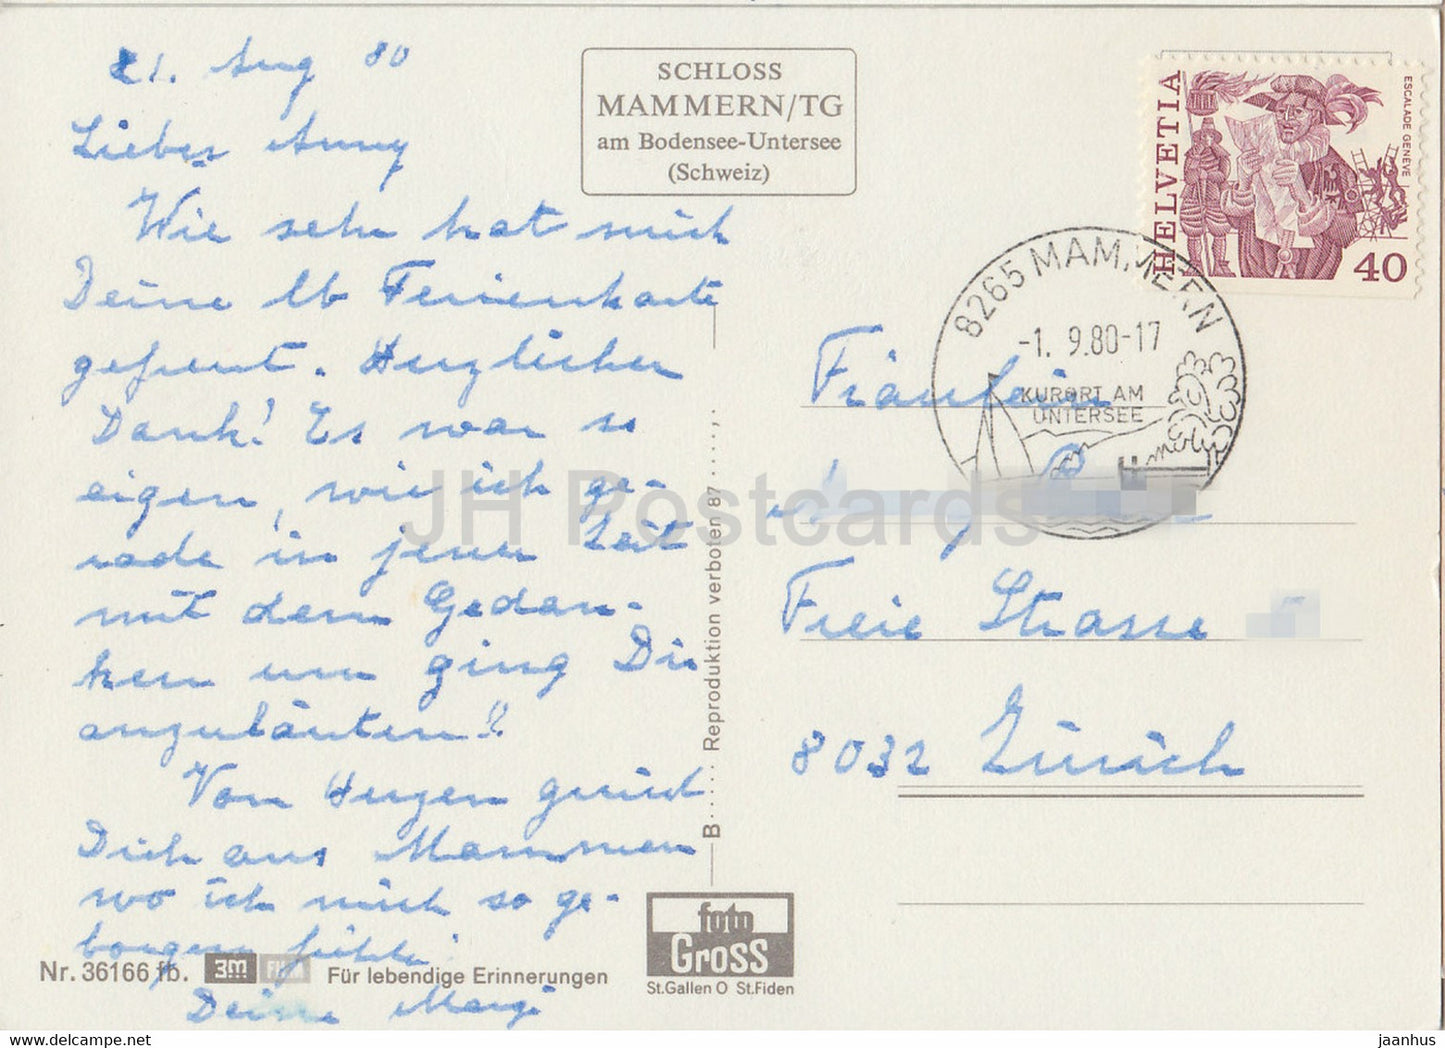 21. Aug 80
Liebes Anny
Wie sehr hat mich
Deine lb Ferienkarte
gefreut. Herzlichen
Dank! Es war so
eigen, wie ich ge-
rade in jener Zeit
mit dem Gedan-
ken um ging Dir
anzuläuten!!
Von Herzen grüsst
Dich aus Mammern
wo ich mich so ge-
borgen fühle!
Deine
SCHLOSS
MAMMERN/TG
am Bodensee-Untersee
(Schweiz)
HELVETIA
ESCALADE GENEVE
40
8265 MAMMERN
-1. 9.80-17
KURORT AM
UNTERSEE
Fräulein
Freie Strasse
8032 Zürich
B..... Reproduktion verboten 87 .....,
JH Postcards
Nr. 36166 fb. 3M FILM Für lebendige Erinnerungen
foto
Gross
St.Gallen O St.Fiden
2020-12-02 10:13:20
jaanhus